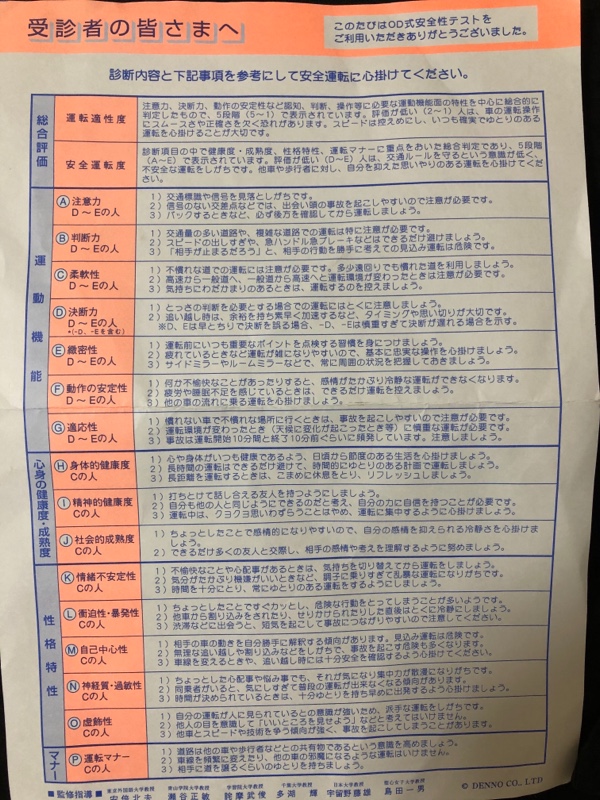 受診者の皆さまへ
このたびはOD式安全性テストを
ご利用いただきありがとうございました。
診断内容と下記事項を参考にして安全運転に心掛けてください。
総合評価
運転適性度
注意力、決断力、動作の安定性など認知、判断、操作等に必要な運動機能面の特性を中心に総合的に
判定したもので、5段階(5〜1)で表示されています。評価が低い(2〜1)人は、車の運転操作
にスムースさや正確さを欠く恐れがあります。スピードは控えめにし、いつも確実でゆとりのある
運転を心掛けることが大切です。
安全運転度
診断項目の中で健康度・成熟度、性格特性、運転マナーに重点をおいた総合判定であり、5段階
(A〜E)で表示されています。評価が低い(D〜E)人は、交通ルールを守るという意識が低く、
不安全な運転をしがちです。他車や歩行者に対し、自分を抑えた思いやりのある運転を心掛けてく
ださい。
運動機能
Ⓐ注意力
D〜Eの人
1)交通標識や信号を見落としがちです。
2)信号のない交差点などでは、出会い頭の事故を起こしやすいので注意が必要です。
3)バックするときなど、必ず後方を確認してから運転しましょう。
Ⓑ判断力
D〜Eの人
1)交通量の多い道路や、複雑な道路での運転は特に注意が必要です。
2)スピードの出しすぎや、急ハンドル急ブレーキなどはできるだけ避けましょう。
3)「相手が止まるだろう」と、相手の行動を勝手に考えての見込み運転は危険です。
Ⓒ柔軟性
D〜Eの人
1)不慣れな道での運転には注意が必要です。多少遠回りでも慣れた道を利用しましょう。
2)高速から一般道へ、一般道から高速へと運転環境が変わったときは注意が必要です。
3)気持ちにわだかまりのあるときは、運転するのを控えましょう。
Ⓓ決断力
D〜Eの人
*(-D、-Eを含む)
1)とっさの判断を必要とする場合の運転にはとくに注意しましょう。
2)追い越し時は、余裕を持ち素早く加速するなど、タイミングや思い切りが大切です。
※D、Eは早とちりで決断を誤る場合、-D、-Eは慎重すぎて決断が遅れる場合を示す。
Ⓔ緻密性
D〜Eの人
1)運転前にいつも重要なポイントを点検する習慣を身につけましょう。
2)疲れているときなど運転が雑になりやすいので、基本に忠実な操作を心掛けましょう。
3)サイドミラーやルームミラーなどで、常に周囲の状況を把握しておきましょう。
Ⓕ動作の安定性
D〜Eの人
1)何か不愉快なことがあったりすると、感情がたかぶり冷静な運転ができなくなります。
2)疲労や睡眠不足を感じているときは、できるだけ運転を控えましょう。
3)他の車の流れに乗る運転を心掛けましょう。
Ⓖ適応性
D〜Eの人
1)慣れない車で不慣れな場所に行くときは、事故を起こしやすいので注意が必要です。
2)運転環境が変わったとき(天候に変化が起こったとき等)に慎重な運転が必要です。
3)事故は運転開始10分間と終了10分前ぐらいに頻発しています。注意しましょう。
心身の健康度・成熟度
Ⓗ身体的健康度
Cの人
1)心や身体がいつも健康であるよう、日頃から節度のある生活を心掛けましょう。
2)長時間の運転はできるだけ避けて、時間的にゆとりのある計画で運転しましょう。
3)長距離を運転するときは、こまめに休息をとり、リフレッシュしましょう。
Ⓘ精神的健康度
Cの人
1)打ちとけて話し合える友人を持つようにしましょう。
2)自分も他の人と同じようにできるのだと考え、自分の力に自信を持つことが必要です。
3)運転中は、クヨクヨ思いわずらうことはやめ、運転に集中するように心掛けましょう。
Ⓙ社会的成熟度
Cの人
1)ちょっとしたことで感情的になりやすいので、自分の感情を抑えられる冷静さを心掛けま
しょう。
2)できるだけ多くの友人と交際し、相手の感情や考えを理解するように努めましょう。
性格特性
Ⓚ情緒不安定性
Cの人
1)不愉快なことや心配事があるときは、気持ちを切り替えてから運転をしましょう。
2)気分がたかぶり機嫌がいいときなど、調子に乗りすぎて乱暴な運転になりがちです。
3)時間を十分にとり、常にゆとりのある運転をするようにしましょう。
Ⓛ衝迫性・暴発性
Cの人
1)ちょっとしたことですぐカッとし、危険な行動をとってしまうことが多いようです。
2)他車から割り込みをされたり、せりかけられたりした直後はとくに冷静にしましょう。
3)渋滞などに出会うと、短気を起こして事故につながりやすいので注意してください。
Ⓜ自己中心性
Cの人
1)相手の車の動きを自分勝手に解釈する傾向があります。見込み運転は危険です。
2)無理な追い越しや割り込みなどをしがちで、事故を起こす危険も多くなります。
3)車線を変えるときや、追い越し時には十分安全を確認するよう心掛けてください。
Ⓝ神経質・過敏性
Cの人
1)ちょっとした心配事や悩み事でも、それが気になり集中力が散漫になりがちです。
2)同乗者がいると、気にしすぎて普段の運転が出来なくなる傾向があります。
3)時間が決められているときは、十分ゆとりを持ち早めに出発するよう心掛けましょう。
Ⓞ虚飾性
Cの人
1)自分の運転が人に見られているとの意識が強いため、派手な運転をしがちです。
2)他人の目を意識して「いいところを見せよう」などと考えてはいけません。
3)他車とスピードや技術を争う傾向が強く、事故を起こしてしまうことがあります。
マナー
Ⓟ運転マナー
Cの人
1)道路は他の車や歩行者などとの共有物であるという意識を高めましょう。
2)車線を頻繁に変えたり、他の車の邪魔になるような運転はいけません。
3)相手に道を譲るくらいのゆとりを持ちましょう。
■監修指導■
東京外国語大学教授
安倍北夫
青山学院大学教授
瀬谷正敏
学習院大学教授
詫摩武俊
千葉大学教授
多湖 輝
日本大学教授
宇留野藤雄
聖心女子大学教授
島田一男
© DENNO CO., LTD